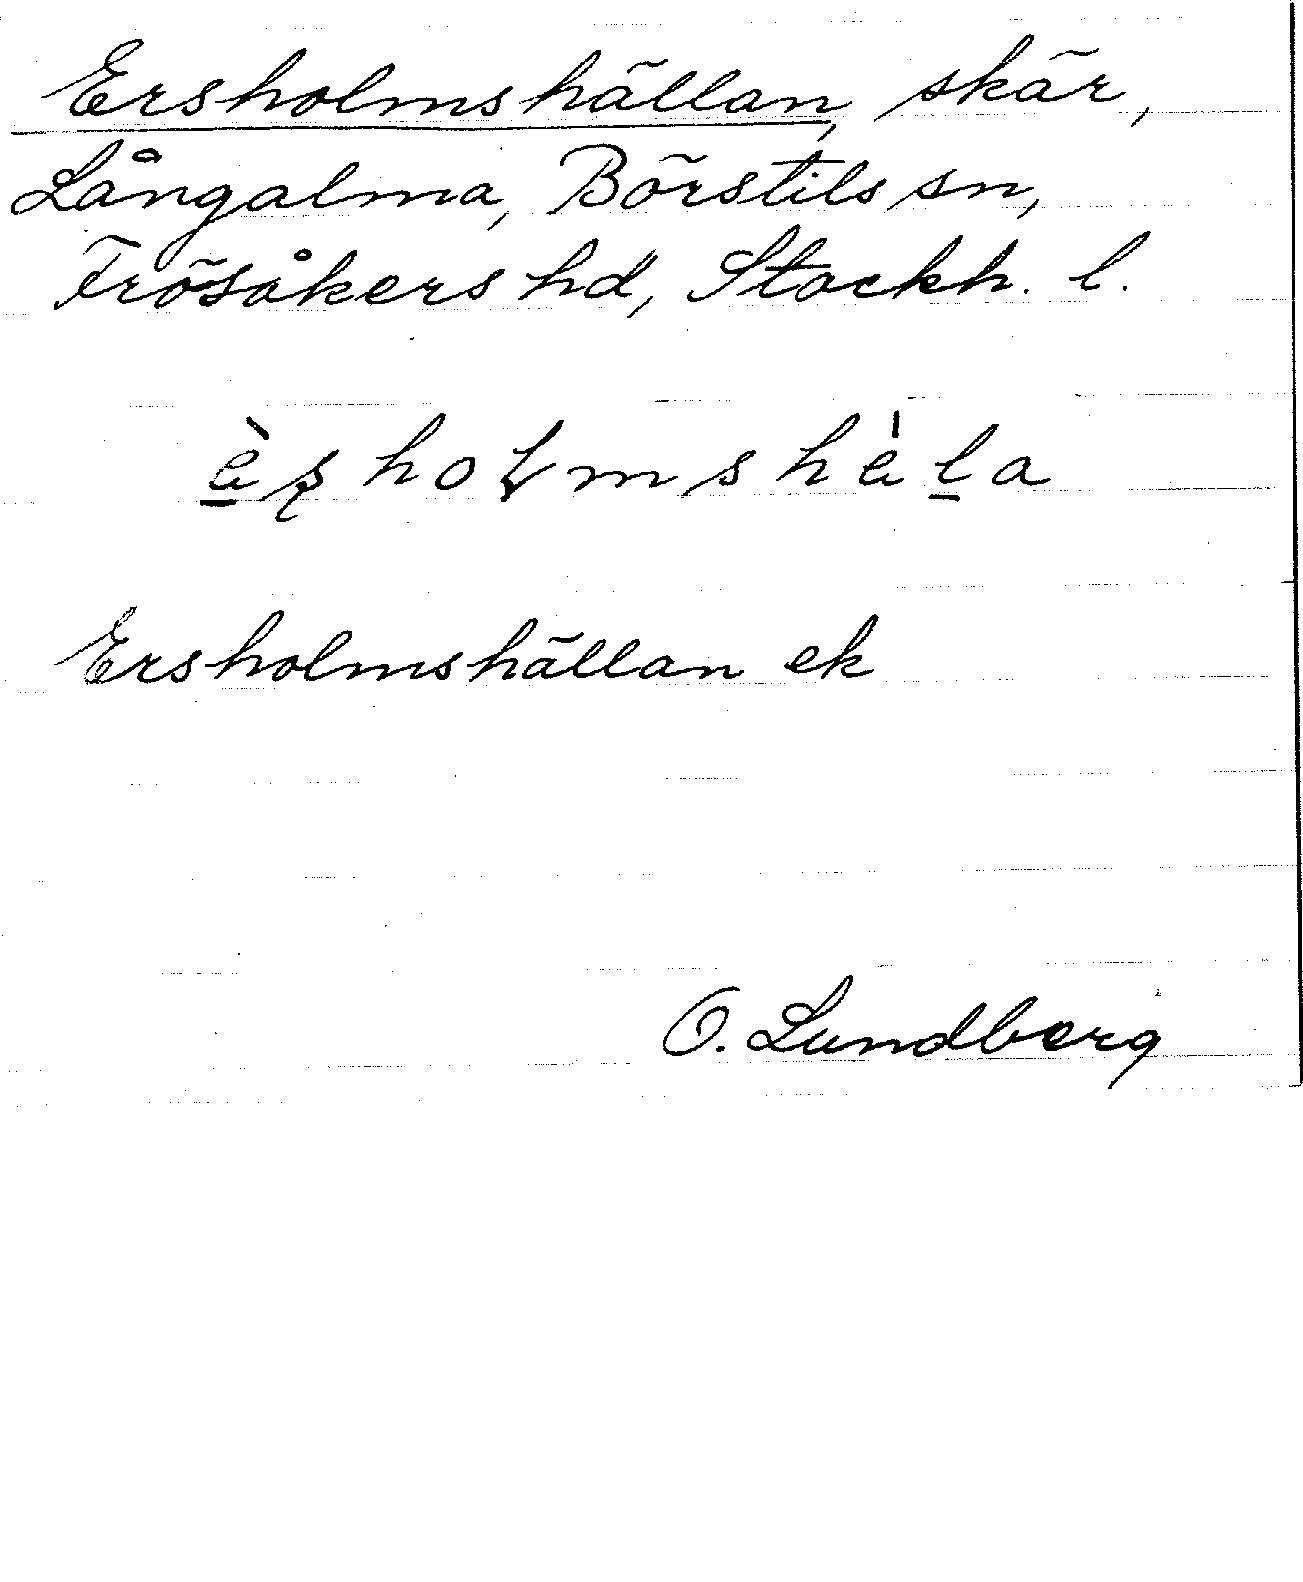 Ersholmshällan, skär,
Långalma, Börstils sn,
Frösåkers hd, Stockh. l.
è̱ʂhoɫmshe̍ḻa
Ersholmshällan ek
O. Lundberg